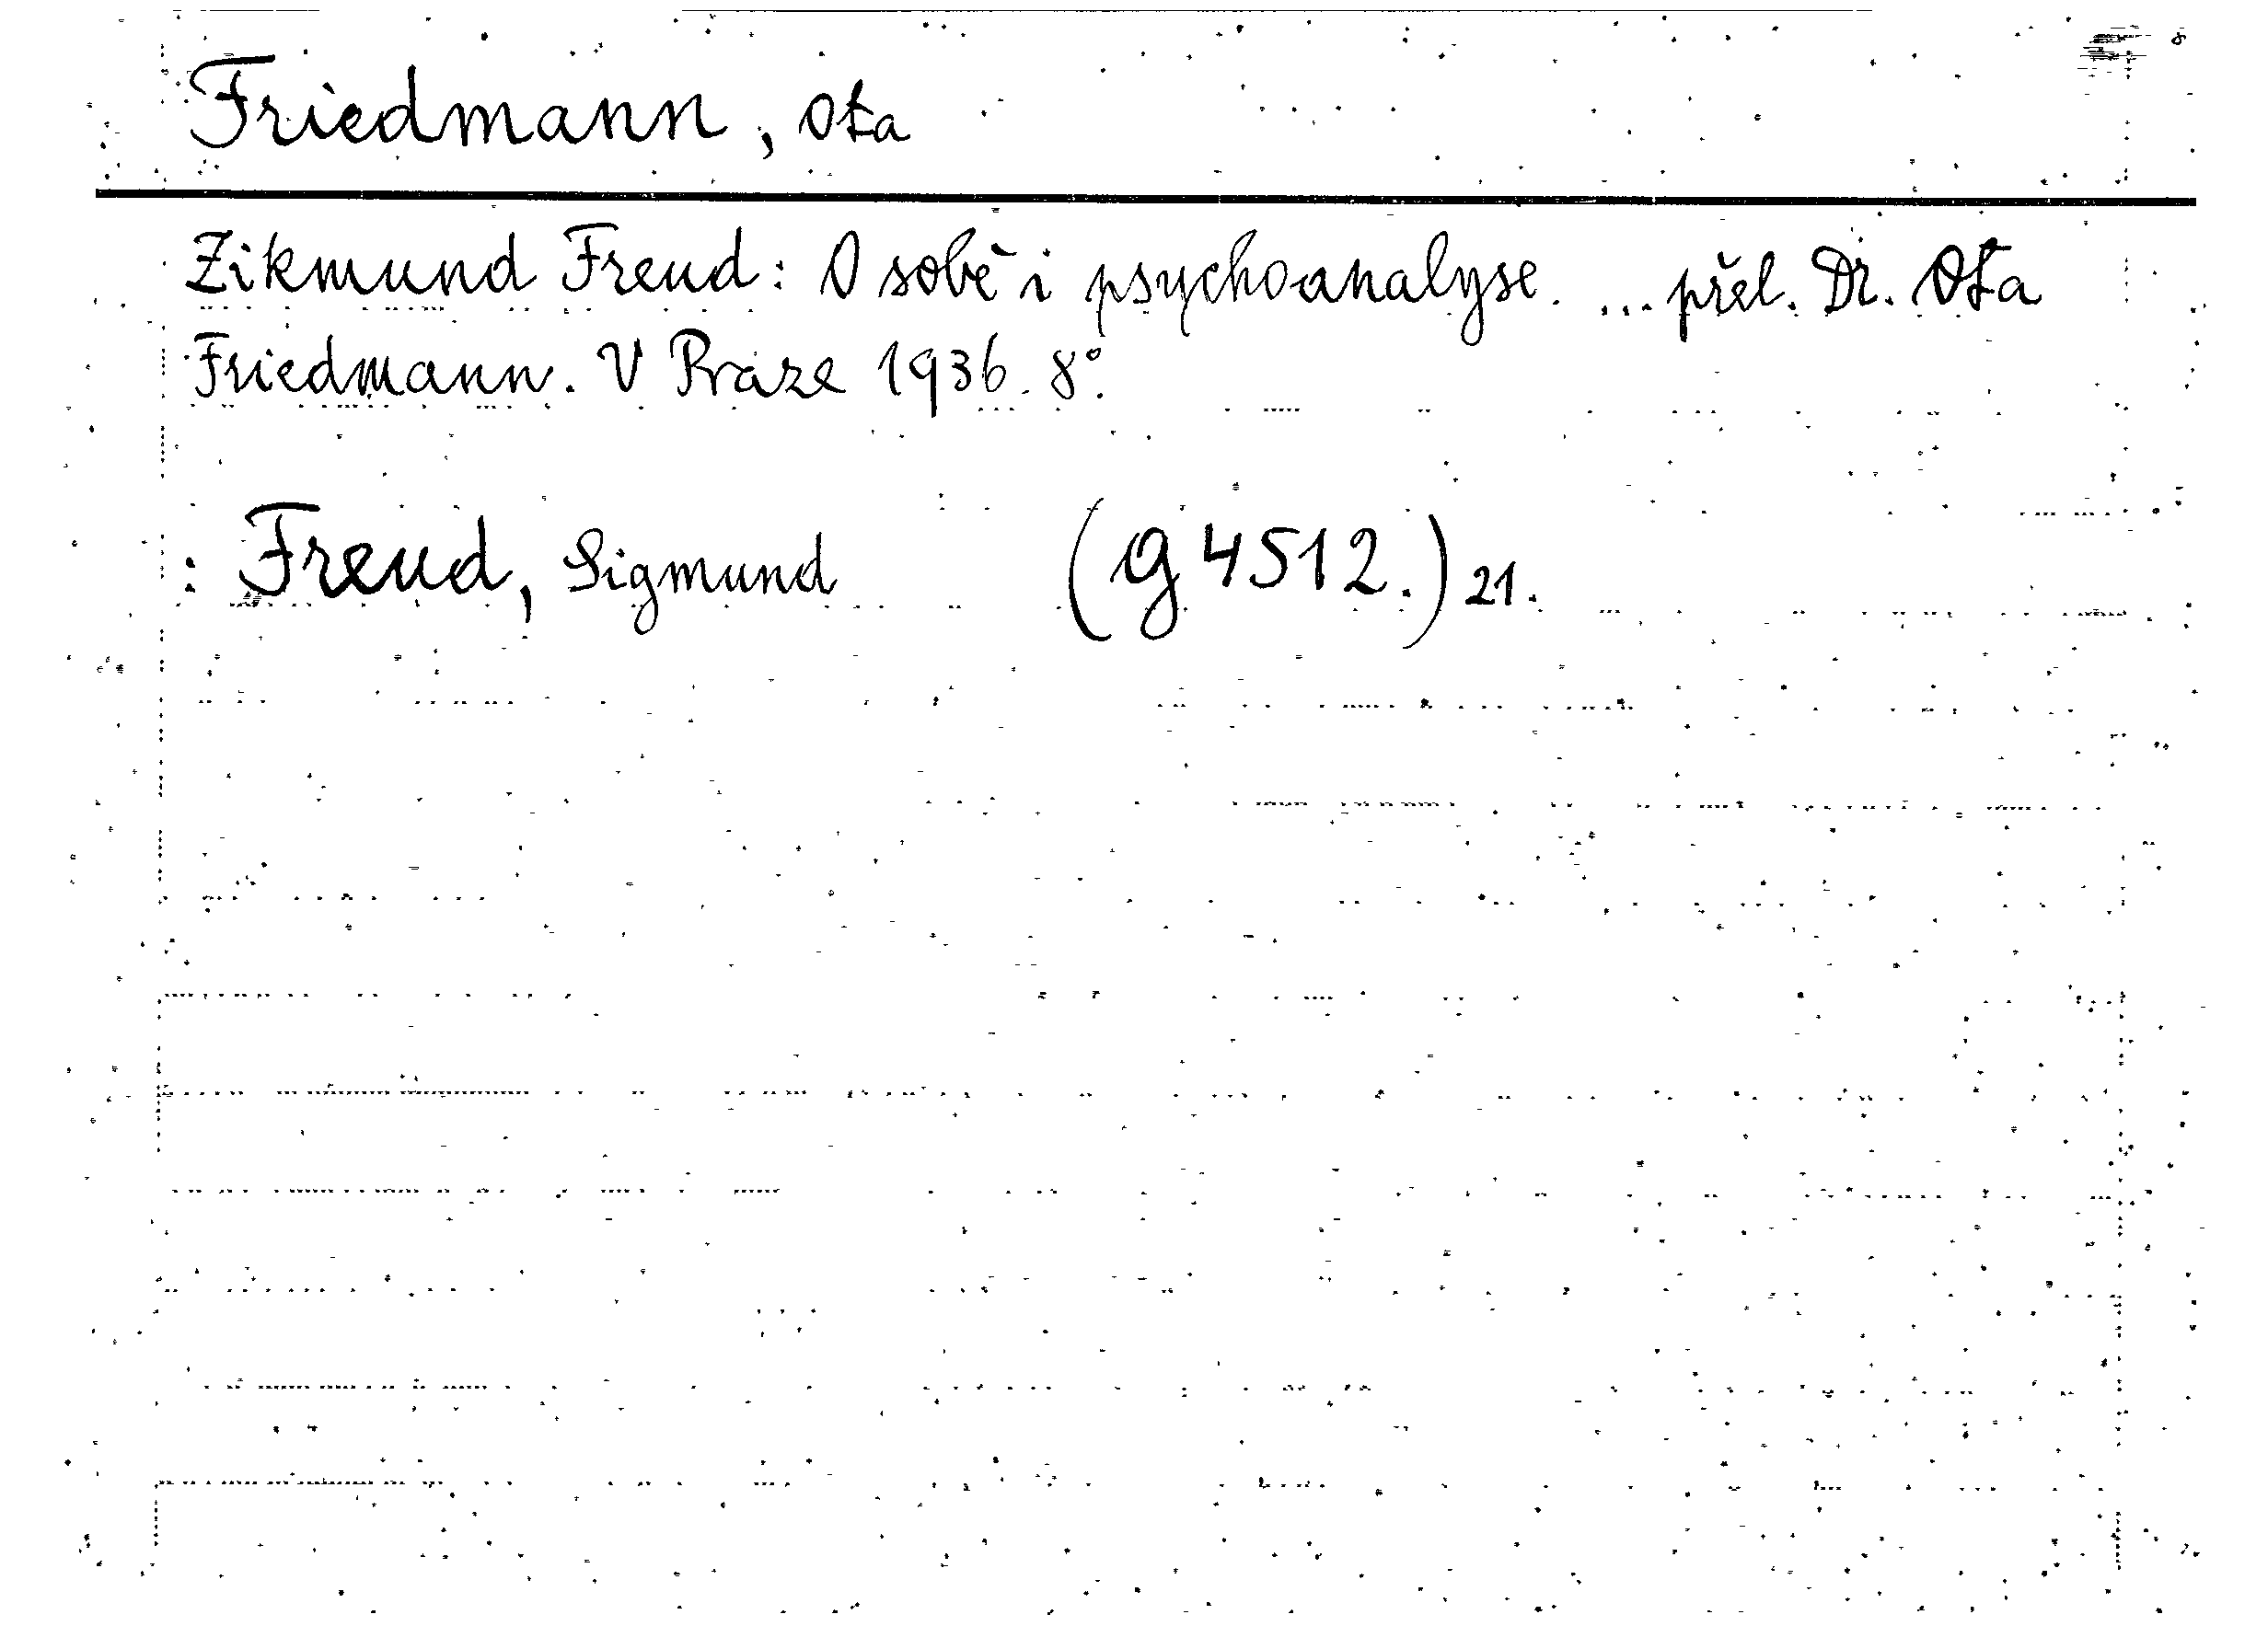 Friedmann, Ota
Zikmund Freud: O sobě i psychoanalyse. ... přel. Dr. Ota
Friedmann. V Praze 1936. 8°.
: Freud, Sigmund (g 4512.) 21.